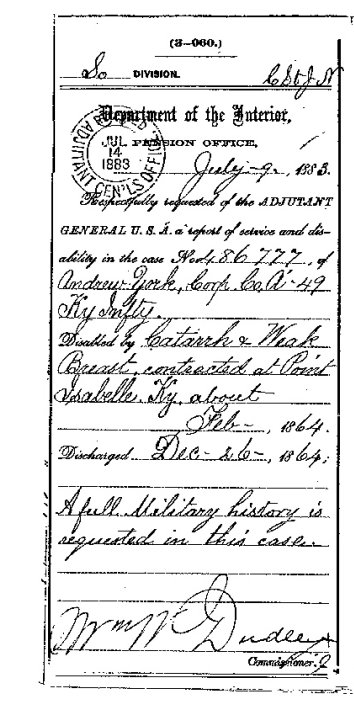 (3-060.)
So DIVISION.
C St J N
Department of the Interior,
PENSION OFFICE,
ADJUTANT GEN'LS OFFICE
JUL
14
1883
July 9, 1883.
Respectfully requested of the ADJUTANT
GENERAL U. S. A. a report of service and dis-
ability in the case No. 486777, of
Andrew York, Corp. Co. A - 49
Ky Infty.
Disabled by Catarrh & Weak
Breast, contracted at Point
Isabelle Ky, about
Feb-, 1864.
Discharged Dec- 26-, 1864;
A full Military history is
requested in this case.
Wm W Dudley
Commissioner.